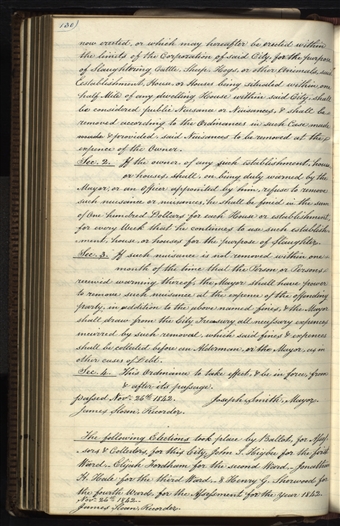 130)
now erected, or which may hereafter be erected within
the limits of the Corporation of said City, for the purpose
of Slaughtering Cattle, Sheep, Hogs, or other Animals, said
Establishment, House, or Houses being situated within one
half Mile of any dwelling House within said City, shall
be considered public Nusance or Nuisances, & shall be
removed according to the Ordinances in such Case made
made & provided. said Nuisances to be removed at the
expence of the Owner.
Sec. 2. If the owner of any such establishment, house
or houses, shall, on being duly warned by the
Mayor, or an officer appointed by him, refuse to remove
such nuisance or nuisances, he shall be fined in the sum
of One hundred Dollars for each House or establishment,
for every Week that he continues to use such establish
ment, house, or houses for the purpose of Slaughter.
Sec. 3. If such nusance is not removed within one
month of the time that the Person or Persons
received warning thereof, the Mayor shall have power
to remove such nuisance at the expense of the offending
party, in addition to the above named fines, & the Mayor
shall draw from the City Treasury all necessary expences
incurred by such removal which said fines & expences
shall be collected before an Alderman, or the Mayor, as in
other cases of Debt.
Sec. 4. This Ordinance to take effect, & be in force, from
& after its passage.
passed Nov. 26th 1842. Joseph Smith, Mayor
James Sloan, Recorder.
The following Elections took place by Ballot, for Asses
sors & Collectors for this City, John S. Higbee for the first
Ward, Elijah Fordham for the second Ward, Jonathan
H. Hale for the third Ward, & Henry G. Sherwood for
the fourth Ward, for the Assessment for the year 1842.
Nov. 26th 1842.
James Sloan, Recorder.